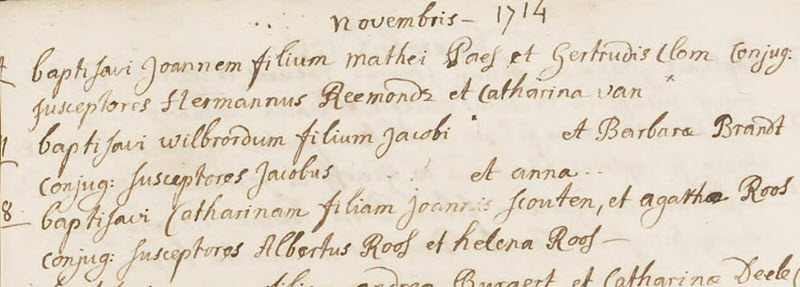 Novembris - 1714
baptisavi Joannem filium mathei Paes et Gertrudis Clom Conjug:
susceptores Hermannus Reemondz et Catharina van
baptisavi wilbrordum filium Jacobi et Barbaræ Brandt
Conjug: susceptores Jacobus et anna
8 baptisavi Catharinam filiam Joannis scouten, et agathæ Roos
Conjug: susceptores Albertus Roos et helena Roos -
Burgert et Catharinæ